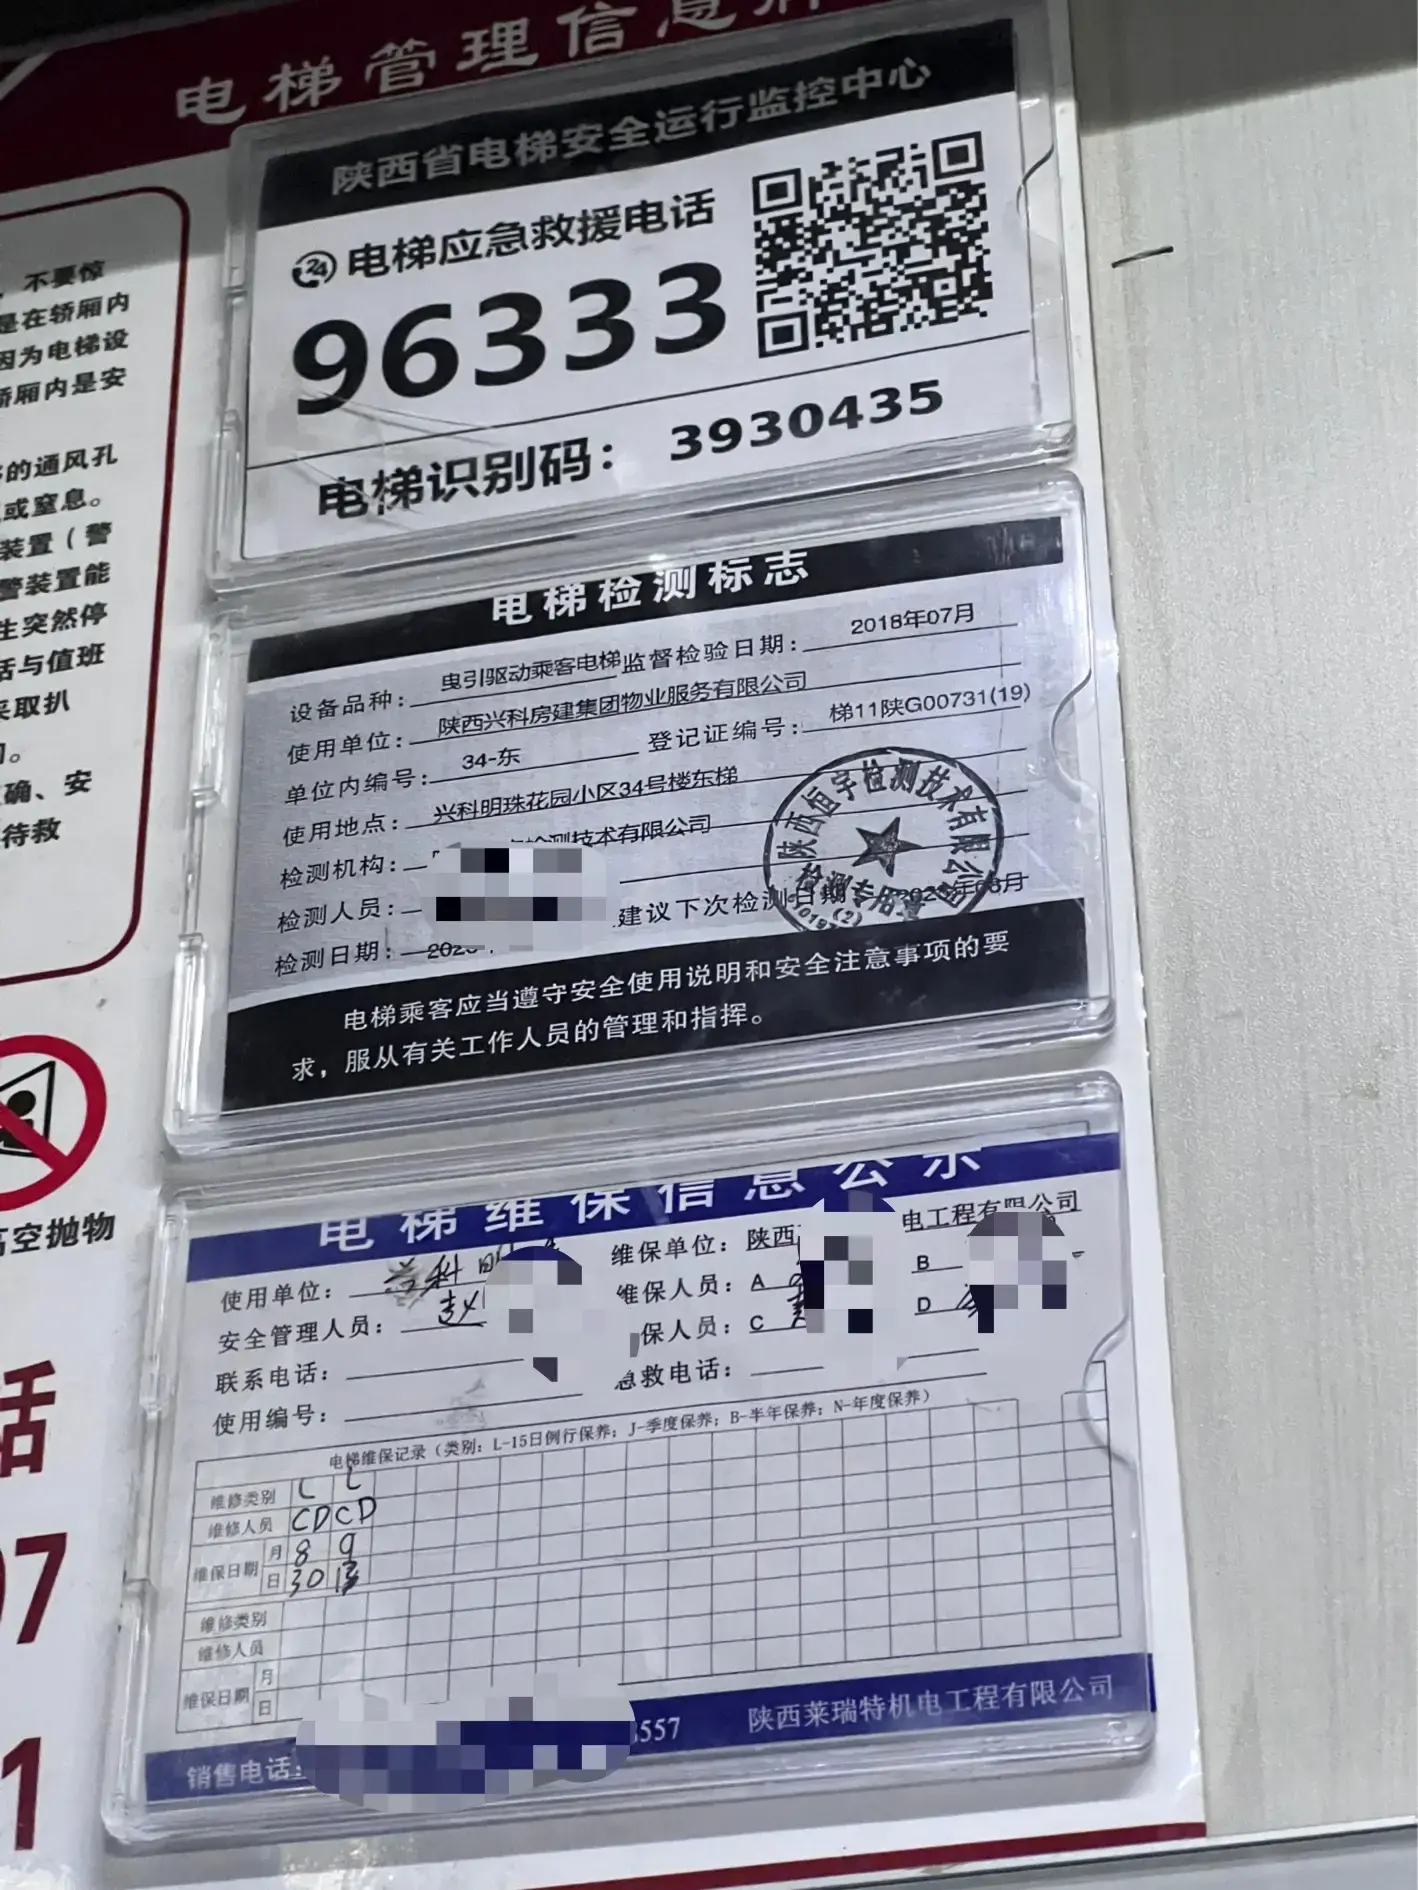 电梯管理信息
陕西省电梯安全运行监控中心
24
电梯应急救援电话
96333
电梯识别码：3930435
不要惊
是在轿厢内
因为电梯设
轿厢内是安
的通风孔
或窒息。
装置（警
警装置能
生突然停
话与值班
采取扒
。
确、安
待救
电梯检测标志
设备品种：曳引驱动乘客电梯 监督检验日期：2018年07月
使用单位：陕西兴科房建集团物业服务有限公司
单位内编号：34-东 登记证编号：梯11陕G00731(19)
使用地点：兴科明珠花园小区34号楼东梯
检测机构：检测技术有限公司
检测人员：
检测日期：建议下次检测日期 年08月
陕西恒宇检测技术有限公司
检测专用章
(2)
电梯乘客应当遵守安全使用说明和安全注意事项的要
求，服从有关工作人员的管理和指挥。
高空抛物
话
07
1
电梯维保信息公示
使用单位：兴科明 维保单位：陕西 电工程有限公司
安全管理人员：赵 维保人员：A B
联系电话： 保人员：C D
使用编号： 急救电话：
电梯维保记录（类别：L-15日例行保养；J-季度保养；B-半年保养；N-年度保养）
维修类别 L L
维修人员 CD CD
维保日期 月 8 9
日 30 13
维修类别
维修人员
维保日期 月
日
销售电话： 557 陕西莱瑞特机电工程有限公司